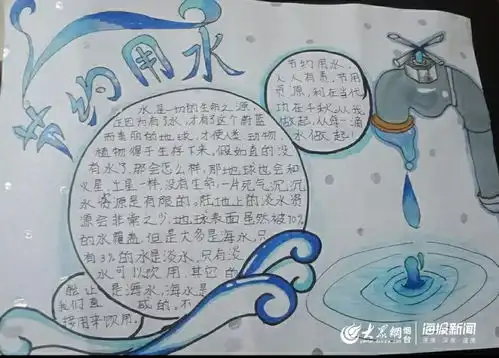 节约用水
水是一切的生命之源,
正因为有了水,才有了这个蔚蓝
而美丽的地球,才使人类、动物、
植物得于生存下来,假如真的没
有水了,那会怎么样,那地球也会和
火星、土星一样,没有生命,一片死气沉沉
水资源是有限的。陆地上的淡水资
源会非常之少,地球表面虽然被70%
的水覆盖,但是大多是海水,只
有3%的水是淡水,只有淡
水可以饮用,其它的
能让
是海水,海水是
我们直
咸的。不
接用来饮用。
节约用水,
人人有责,节用
资源,利在当代
功在千秋,从我
做起,从每一滴
水做起!
大众网
烟台
海报新闻